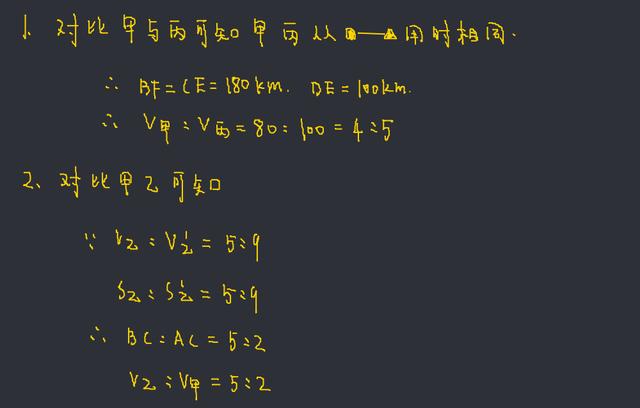 1. 对比甲与丙可知甲丙从■—▲用时相同.
∴ BF=CE=180km. DE=100km.
∴ V甲:V丙=80:100=4:5
2、对比甲乙可知
∵ V乙:V'乙=5:9
S乙:S'乙=5:9
∴ BC:AC=5:2
V乙:V甲=5:2